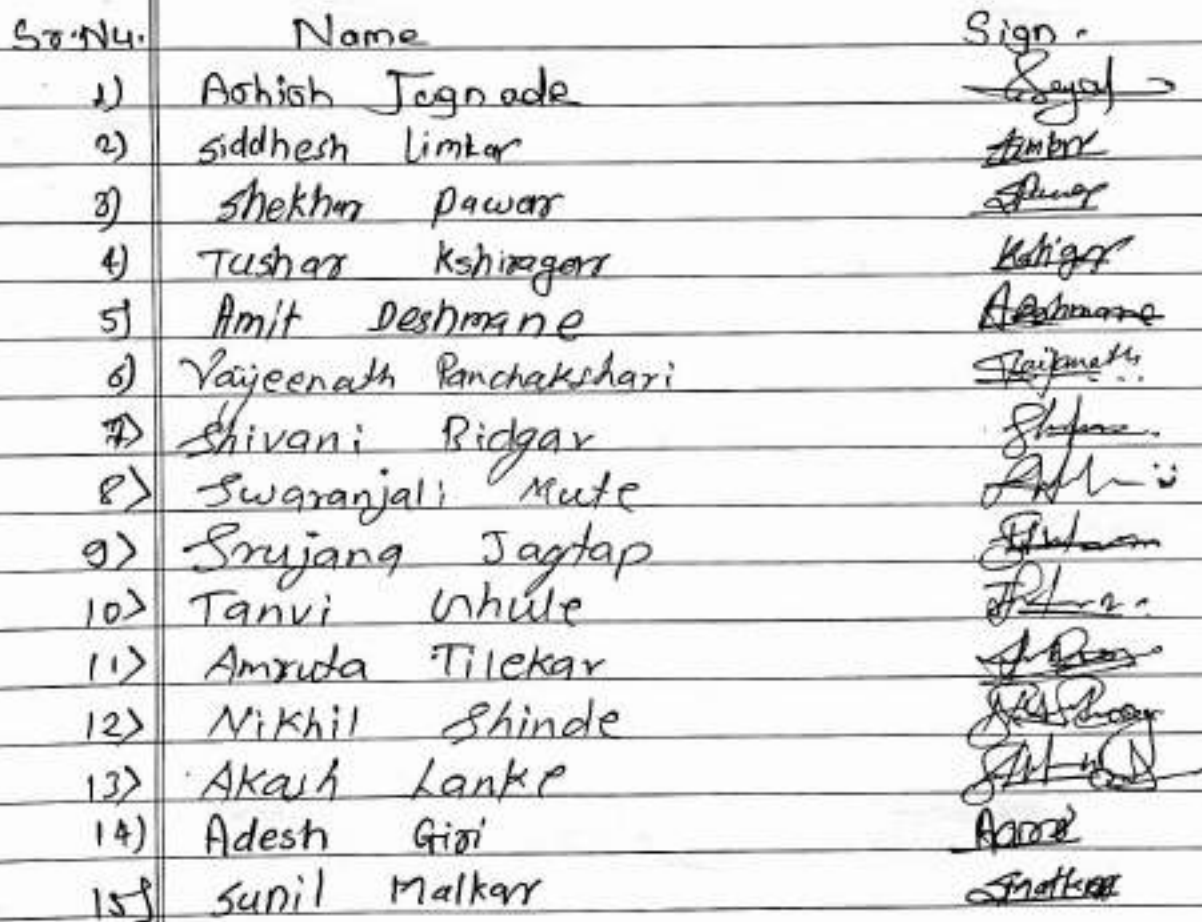 Sr.No. Name Sign.
1) Ashish Jagnade
2) Siddhesh Limkar Limkar
3) Shekhar Pawar Pawar
4) Tushar Kshiragar
5) Amit Deshmane ADeshmane
6) Vaijeenath Panchakshari Vaijenath
7) Shivani Bidgar
8) Swaranjali Mute
9) Srujana Jagtap
10) Tanvi Ghule
11) Amruta Tilekar
12) Nikhil Shinde
13) Akash Lanke
14) Adesh Giri
15) Sunil Malkar SMalkar